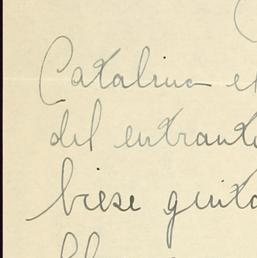 Catalina el
del entrante
biese quita